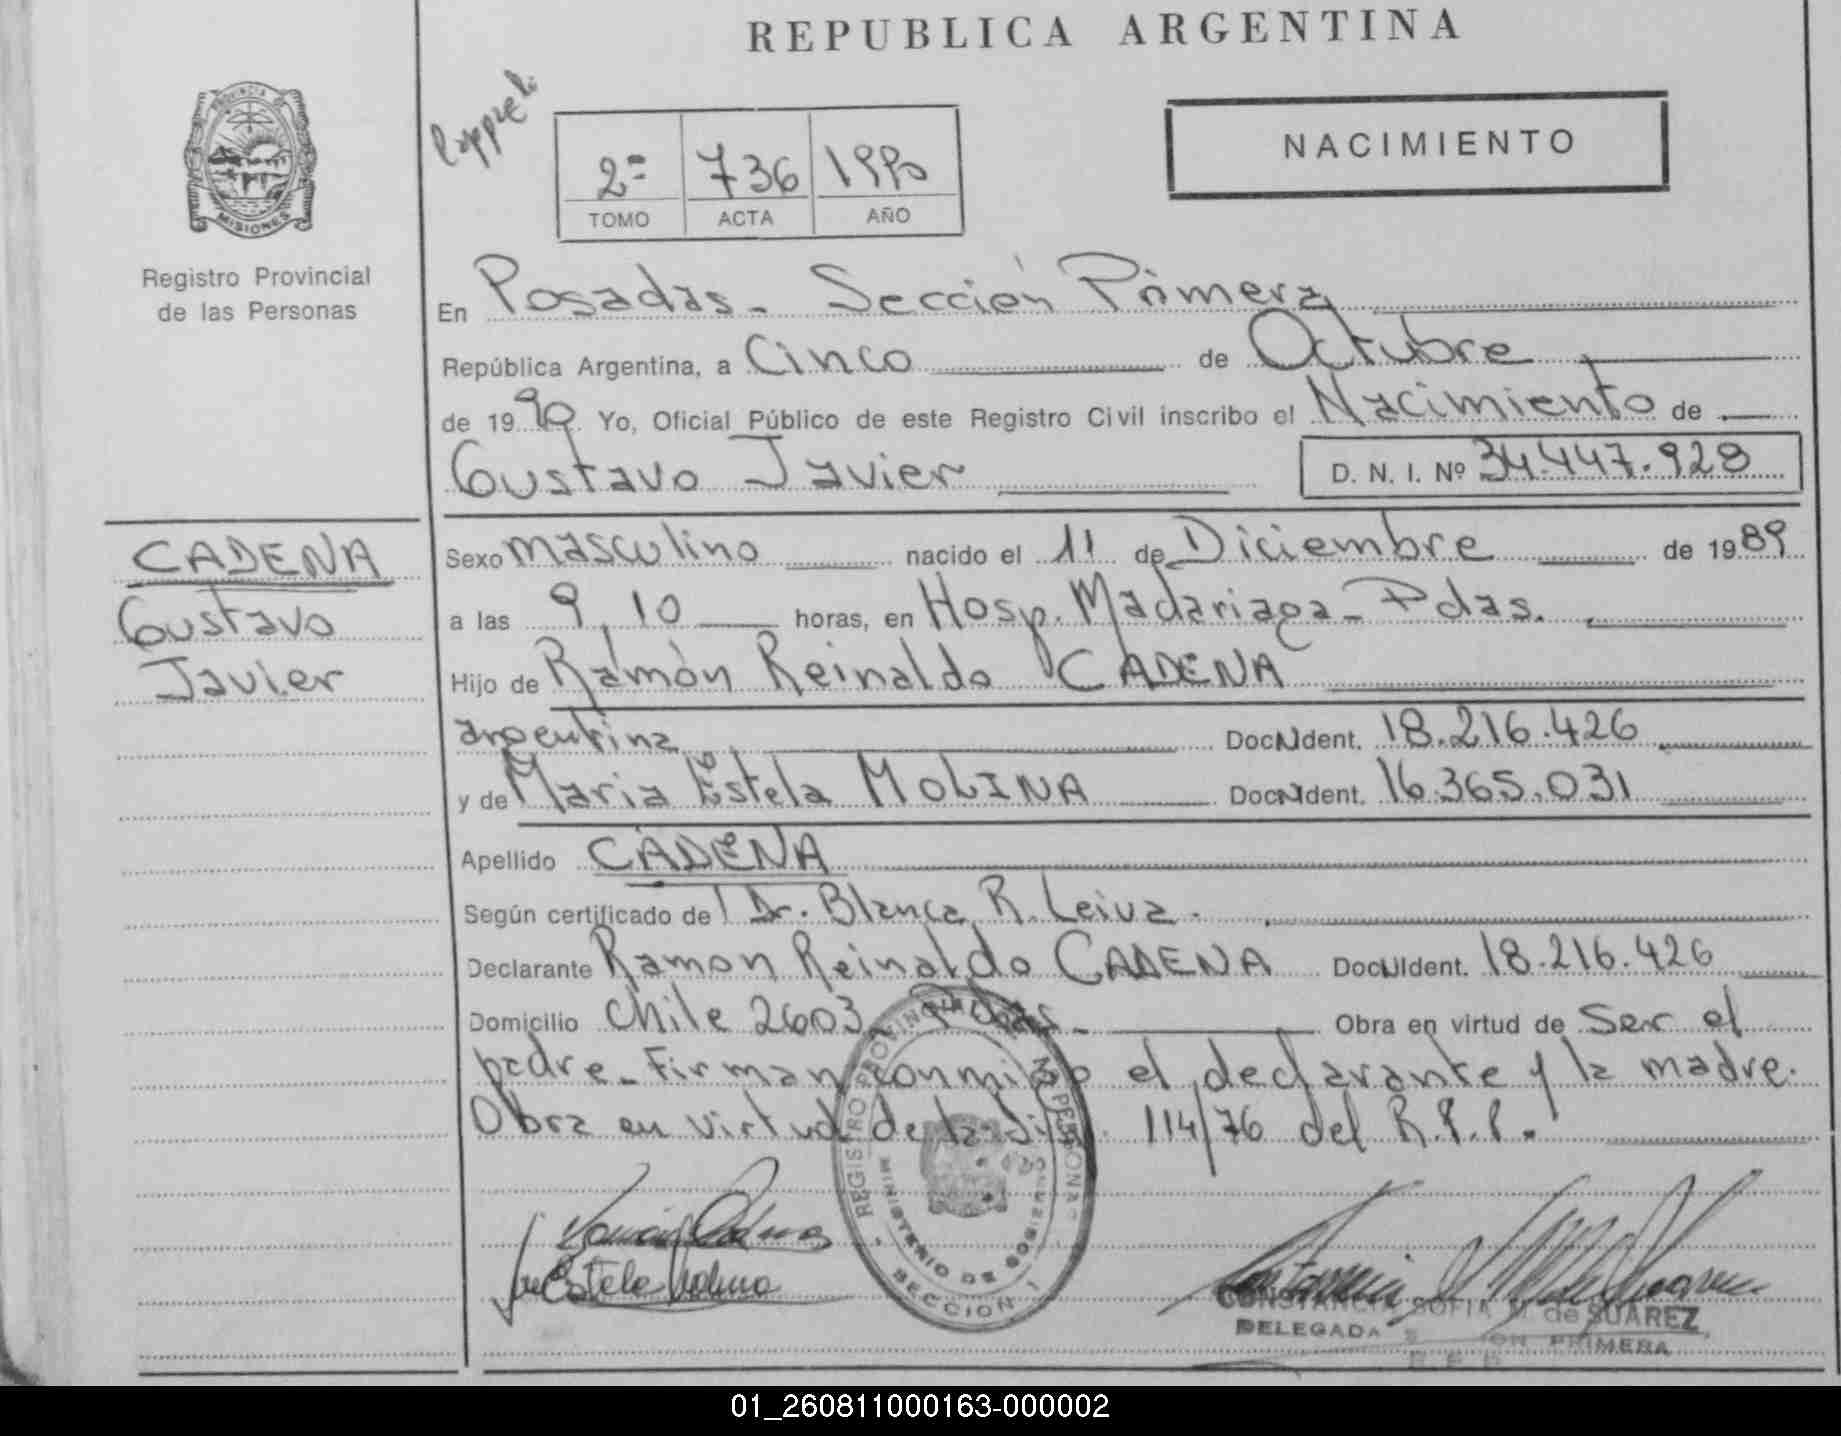 REPUBLICA ARGENTINA
PROVINCIA DE
MISIONES
Registro Provincial
de las Personas
2º 736 1990
TOMO ACTA AÑO
NACIMIENTO
En Posadas - Sección Primera
República Argentina, a Cinco de Octubre
de 1990. Yo, Oficial Público de este Registro Civil inscribo el Nacimiento de
Gustavo Javier D. N. I. Nº 34.447.928
CADENA
Gustavo
Javier
Sexo masculino nacido el 11 de Diciembre de 1989
a las 9,10 horas, en Hosp. Madariaga - Pdas.
Hijo de Ramón Reinaldo CADENA
argentina DocNIdent. 18.216.426
y de Maria Estela MOLINA DocNIdent. 16.365.031
Apellido CADENA
Según certificado de Dr. Blanca R. Leiva.
Declarante Ramon Reinaldo CADENA DocNIdent. 18.216.426
Domicilio Chile 2603 Pdas. Obra en virtud de Ser el
padre - Firman conmigo el declarante y la madre.
Obra en virtud de la disp. 114/76 del R.P.P.
REGISTRO PROVINCIAL DE LAS PERSONAS
MINISTERIO DE GOBIERNO
SECCION 1
CONSTANCIA SOFIA M. de SUAREZ
DELEGADA SECCION PRIMERA
R. P. P.
01_260811000163-000002